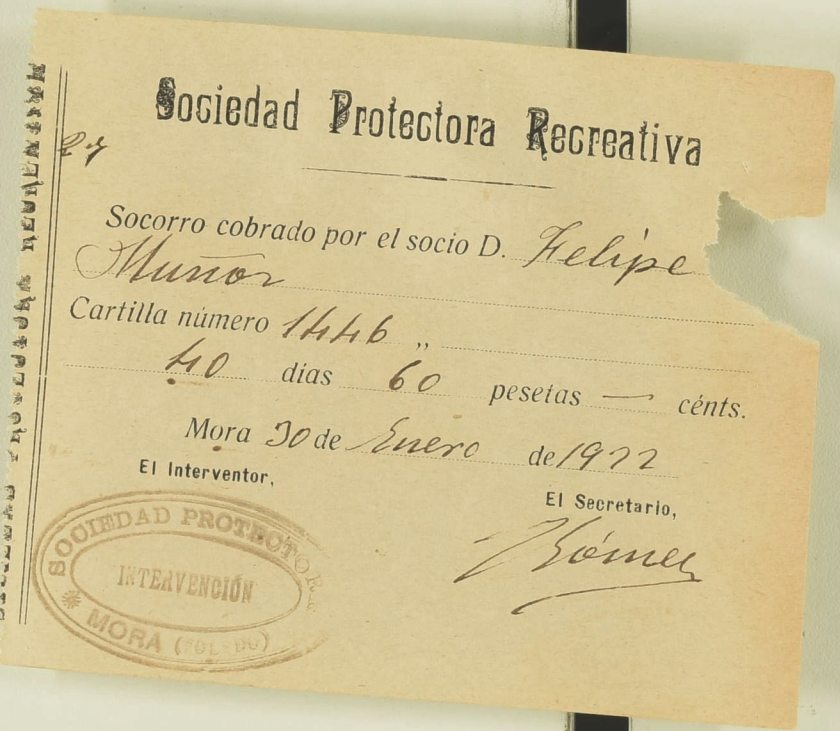 Sociedad Protectora Recreativa
27
Socorro cobrado por el socio D. Felipe
Muñoz
Cartilla número 1446 „
40 días 60 pesetas — cénts.
Mora 30 de Enero de 1922
El Interventor,
El Secretario,
Gómez
SOCIEDAD PROTECTOR
INTERVENCIÓN
MORA (TOLEDO)